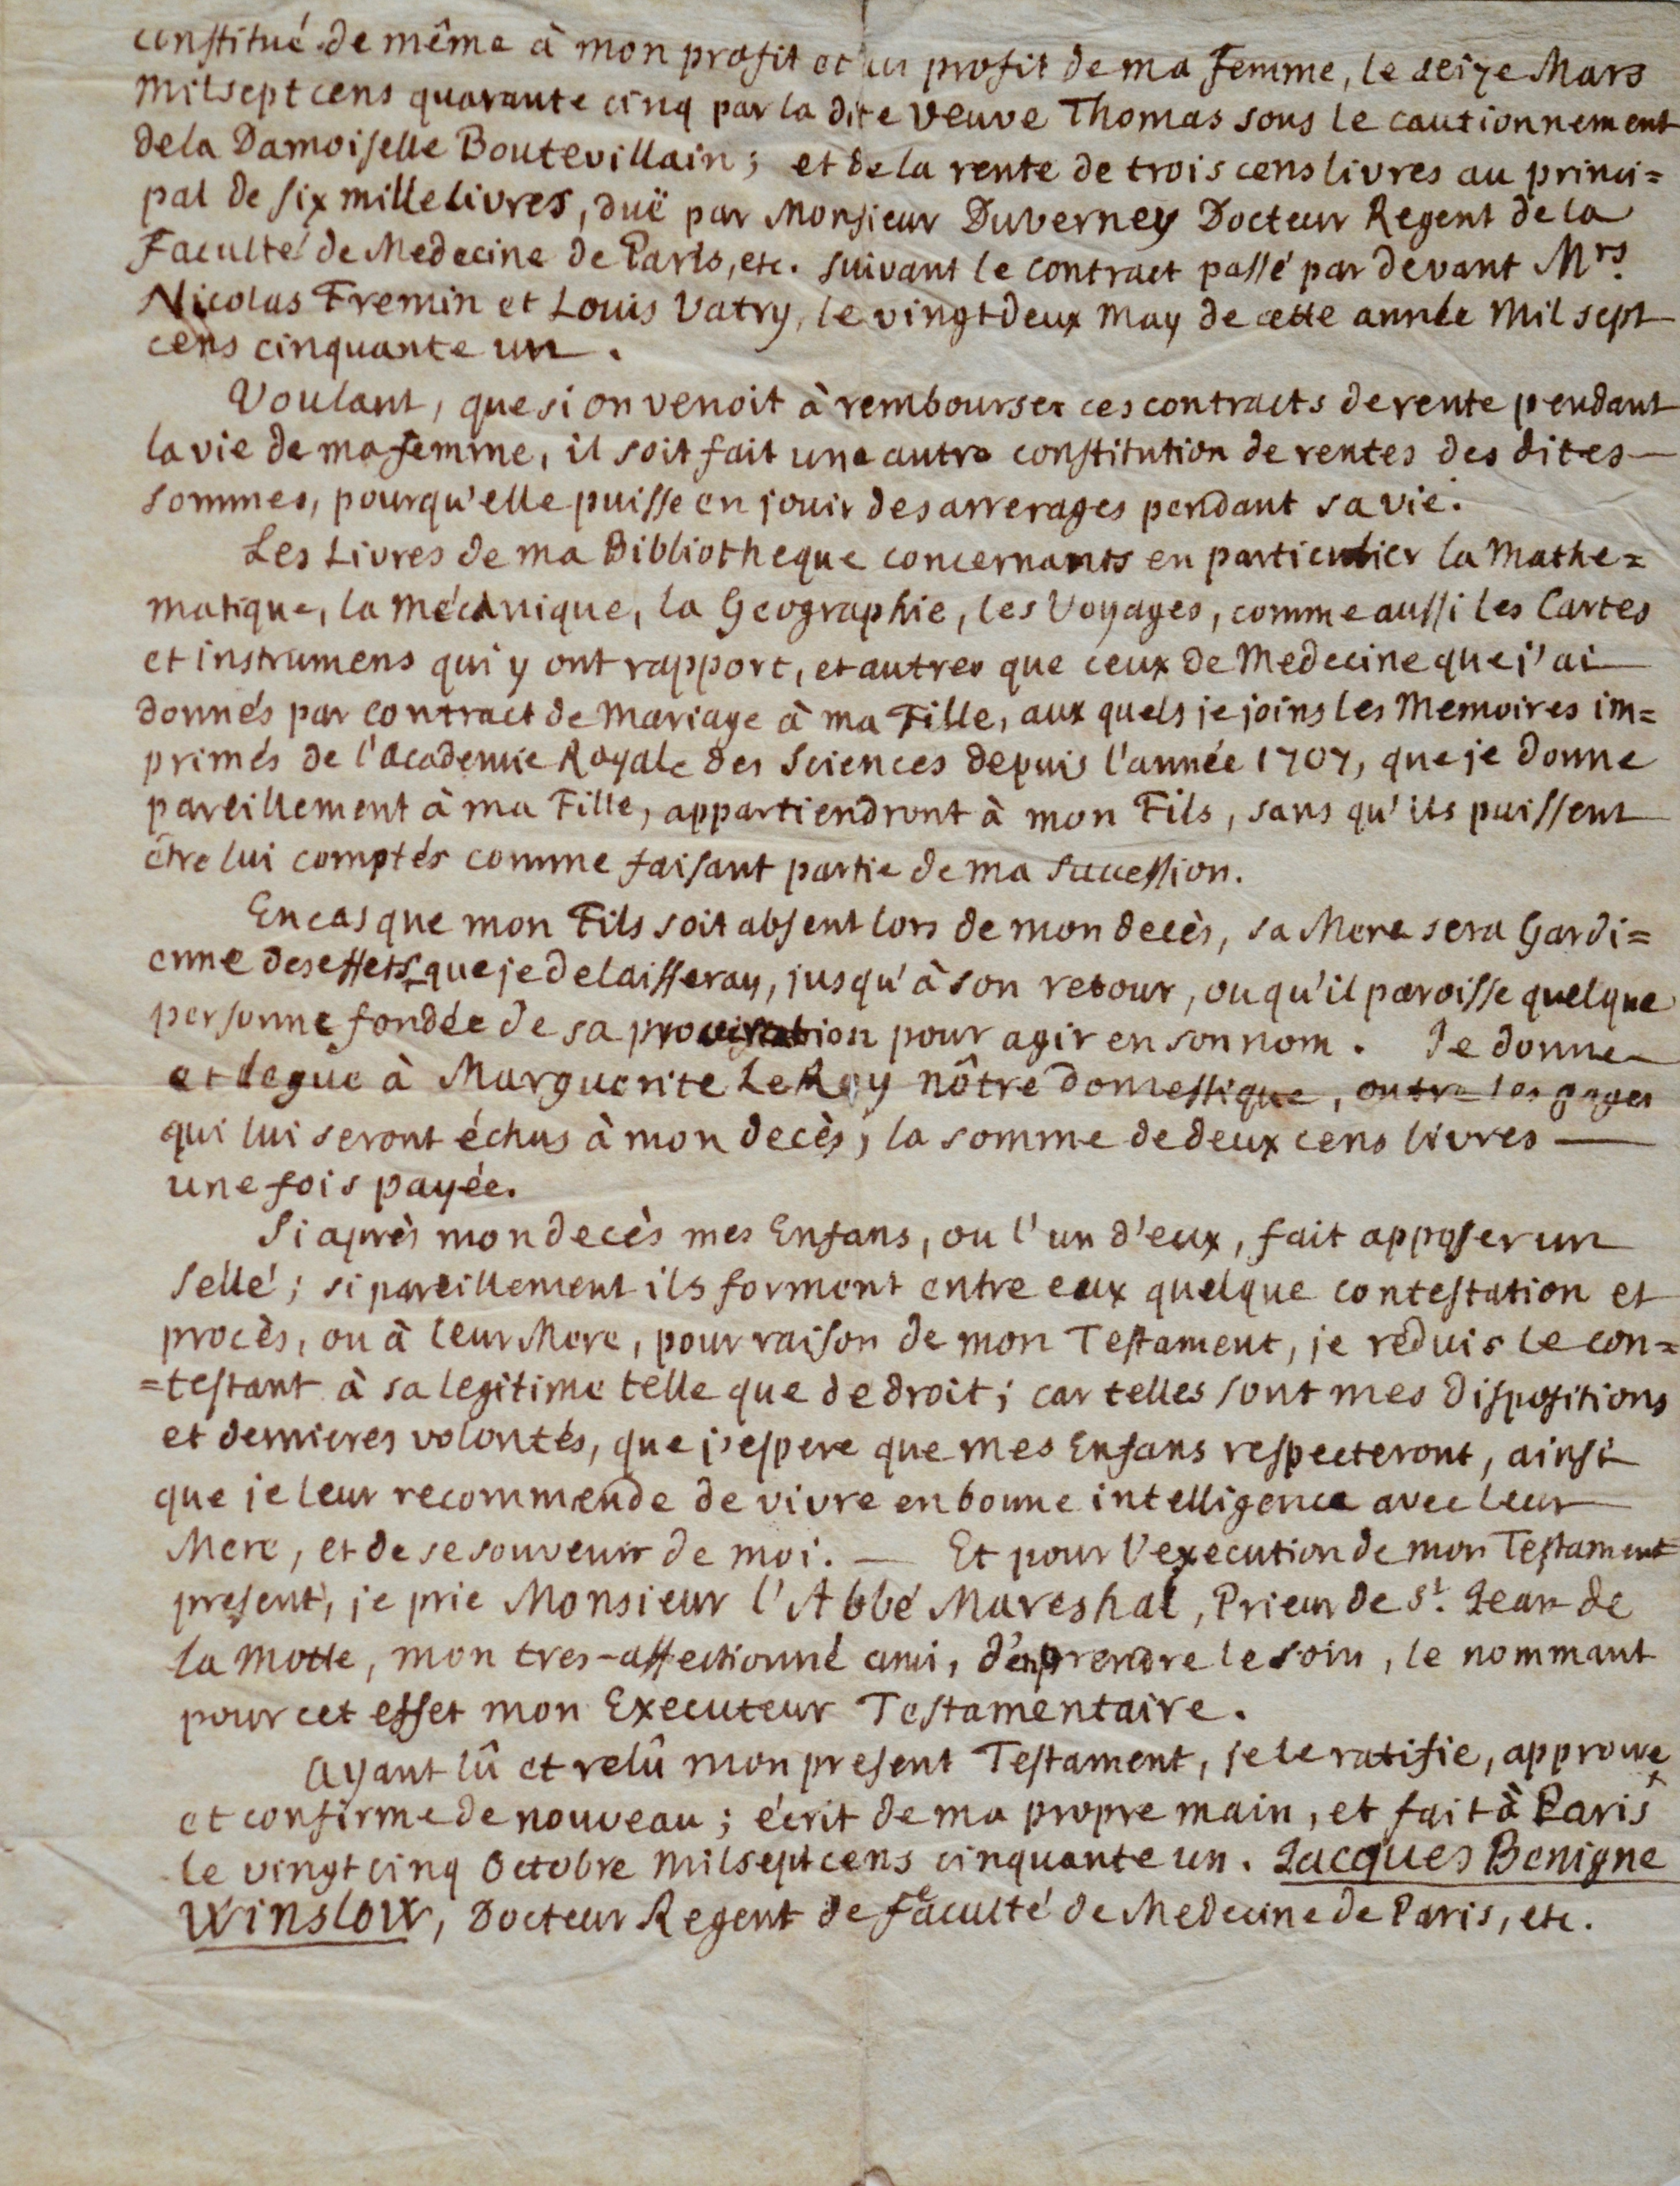 constitué de même à mon profit et au profit de ma femme, le seize Mars
mil sept cens quarante cinq par la dite Veuve Thomas sous le cautionnement
de la Damoiselle Boutevillain ; et de la rente de trois cens livres au princi=
pal de six mille livres, duë par Monsieur Duverney Docteur Regent de la
Faculté de Medecine de Paris, etc. suivant le contract passé par devant Mrs.
Nicolas Fremin et Louis Vatry, le vingt deux may de cette année mil sept
cens cinquante un.
Voulant, que si on venoit à rembourser ces contracts de rente pendant
la vie de ma femme, il soit fait une autre constitution de rentes des dites
sommes, pourqu'elle puisse en jouir des arrerages pendant sa vie.
Les Livres de ma Bibliotheque concernants en particulier la Mathe=
matique, la mécanique, la Geographie, les Voyages, comme aussi les Cartes
et instrumens qui y ont rapport, et autres que ceux de Medecine que j'ai
donnés par contract de mariage à ma Fille, aux quels je joins les Memoires im=
primés de l'academie Royale des Sciences depuis l'année 1707, que je donne
pareillement à ma Fille, appartiendront à mon Fils, sans qu'ils puissent
être lui comptés comme faisant partie de ma succession.
En cas que mon Fils soit absent lors de mon decès, sa Mere sera Gardi=
enne des effets que je delaisseray, jusqu'à son retour, ou qu'il paroisse quelque
personne fondée de sa pour agir en son nom. Je donne
et legue à Marguerite Le Roy nôtre domestique, outre les gages
qui lui seront échus à mon decès, la somme de deux cens livres
une fois payée.
Si après mon decès mes Enfans, ou l'un d'eux, fait apposer un
sellé ; si pareillement ils forment entre eux quelque contestation et
procès, ou à leur Mere, pour raison de mon Testament, je réduis le con=
=testant à sa legitime telle que de droit ; car telles sont mes dispositions
et dernieres volontés, que j'espere que mes Enfans respecteront, ainsi
que je leur recommende de vivre en bonne intelligence avec leur
Mere, et de se souvenir de moi. — Et pour l'execution de mon Testament
present, je prie Monsieur l'Abbé Mareshal, Prieur de St. Jean de
la Motte, mon tres-affectionné ami, d'en prendre le soin, le nommant
pour cet effet mon Executeur Testamentaire.
Ayant lû et relû mon present Testament, je le ratifie, approuve
et confirme de nouveau ; écrit de ma propre main, et fait à Paris
le vingt cinq Octobre mil sept cens cinquante un. Jacques Benigne
Winslow, Docteur Regent de faculté de Medecine de Paris, etc.